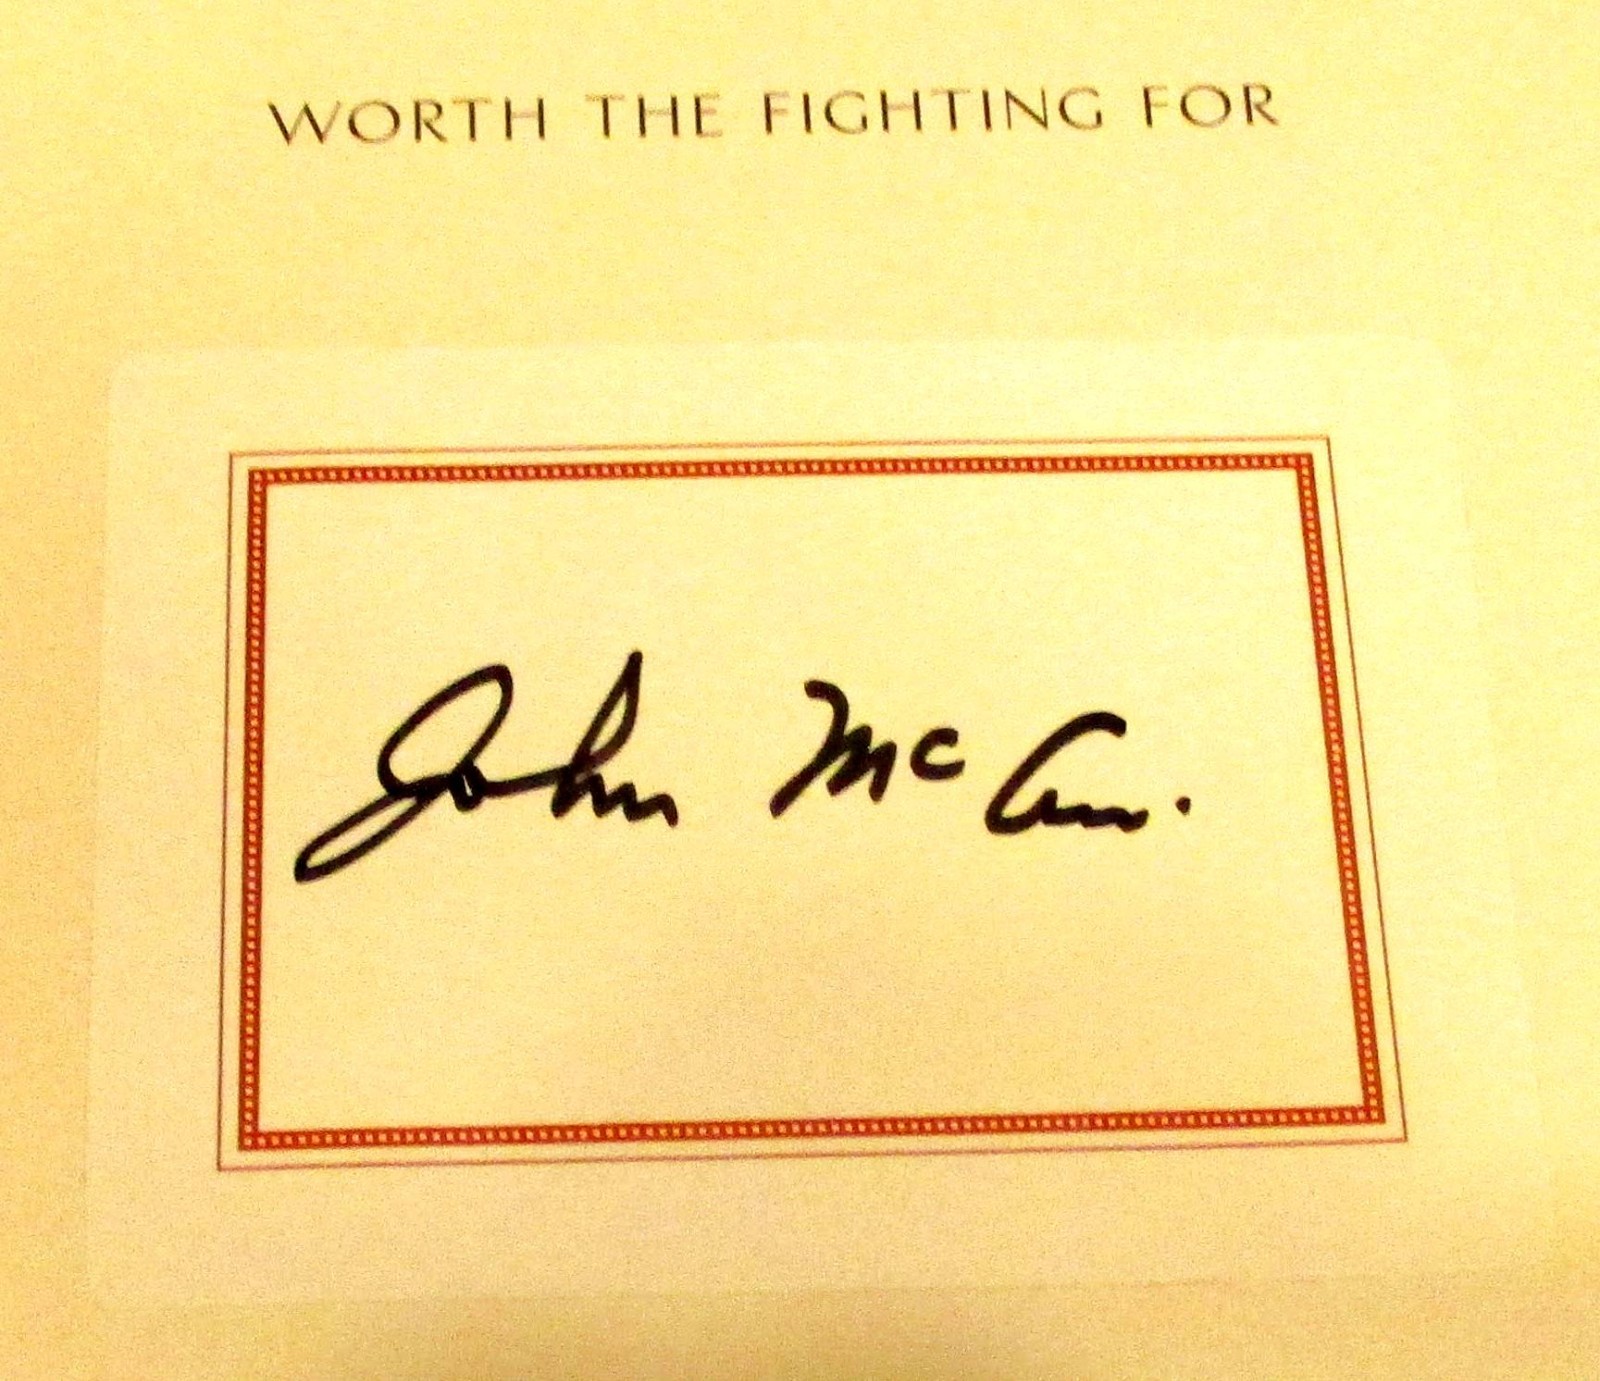 WORTH THE FIGHTING FOR
John McCain